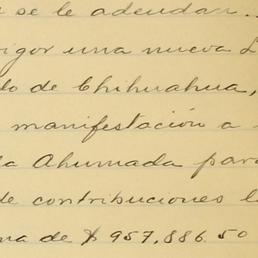 se le adeudan..
vigor una nueva L
do de Chihuahua,
manifestación a
la Ahumada para
de contribuciones l
ma de $957,886.50